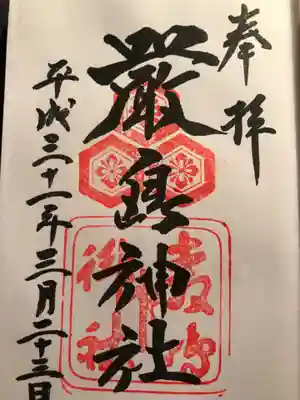 奉拝
嚴島神社
平成三十一年三月二十三日